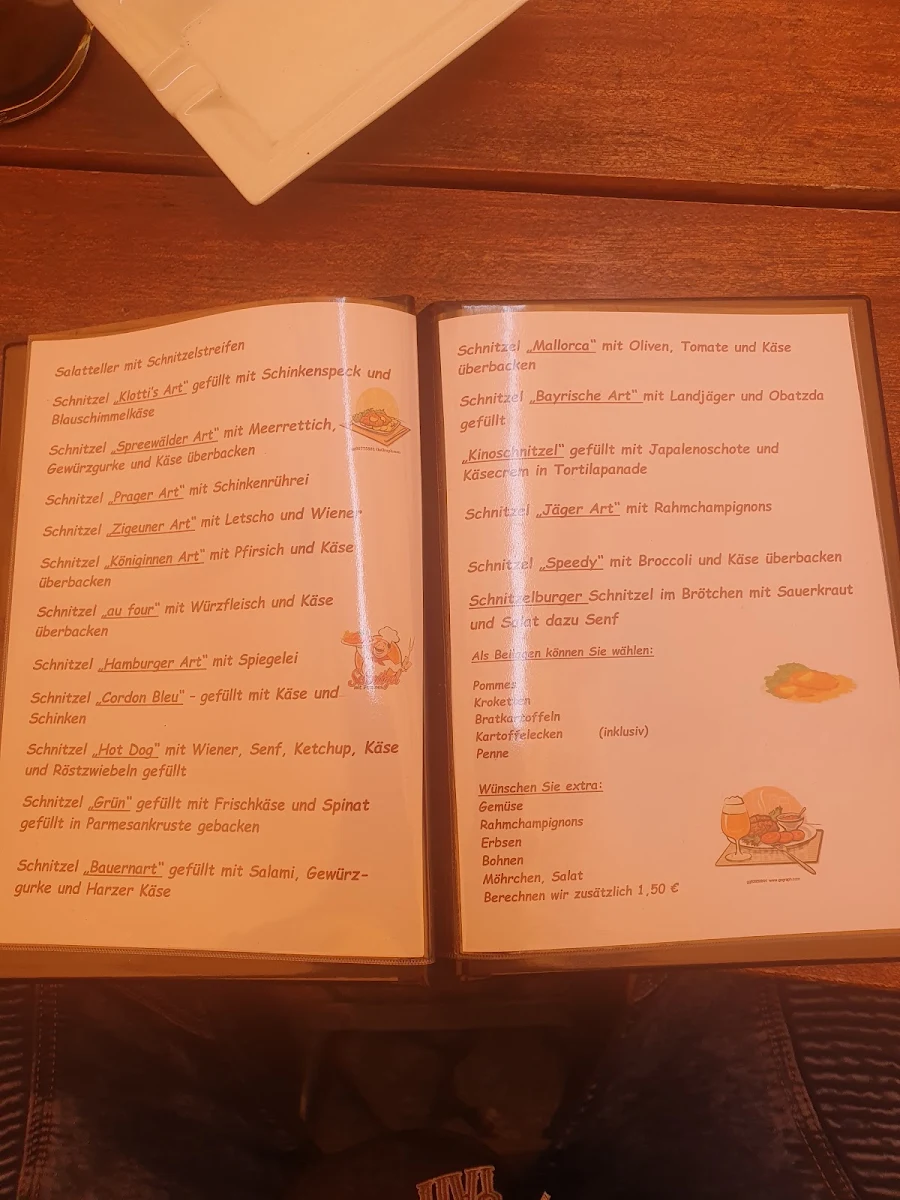 Salatteller mit Schnitzelstreifen
Schnitzel „Klotti's Art" gefüllt mit Schinkenspeck und
Blauschimmelkäse
Schnitzel „Spreewälder Art" mit Meerrettich,
Gewürzgurke und Käse überbacken
Schnitzel „Prager Art" mit Schinkenrührei
Schnitzel „Zigeuner Art" mit Letscho und Wiener
Schnitzel „Königinnen Art" mit Pfirsich und Käse
überbacken
Schnitzel „au four" mit Würzfleisch und Käse
überbacken
Schnitzel „Hamburger Art" mit Spiegelei
Schnitzel „Cordon Bleu" - gefüllt mit Käse und
Schinken
Schnitzel „Hot Dog" mit Wiener, Senf, Ketchup, Käse
und Röstzwiebeln gefüllt
Schnitzel „Grün" gefüllt mit Frischkäse und Spinat
gefüllt in Parmesankruste gebacken
Schnitzel „Bauernart" gefüllt mit Salami, Gewürz-
gurke und Harzer Käse
Schnitzel „Mallorca" mit Oliven, Tomate und Käse
überbacken
Schnitzel „Bayrische Art" mit Landjäger und Obatzda
gefüllt
„Kinoschnitzel" gefüllt mit Japalenoschote und
Käsecrem in Tortilapanade
Schnitzel „Jäger Art" mit Rahmchampignons
Schnitzel „Speedy" mit Broccoli und Käse überbacken
Schnitzelburger Schnitzel im Brötchen mit Sauerkraut
und Salat dazu Senf
Als Beilagen können Sie wählen:
Pommes
Kroketten
Bratkartoffeln
Kartoffelecken (inklusiv)
Penne
Wünschen Sie extra:
Gemüse
Rahmchampignons
Erbsen
Bohnen
Möhrchen, Salat
Berechnen wir zusätzlich 1,50 €